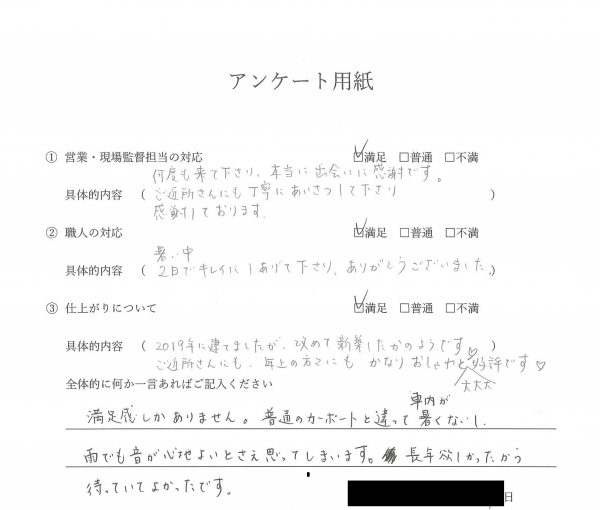 アンケート用紙
① 営業・現場監督担当の対応 ☑満足 □普通 □不満
何度も来て下さり、本当に出会いに感謝です。
具体的内容 ( ご近所さんにも丁寧にあいさつして下さり )
感謝しております。
② 職人の対応 ☑満足 □普通 □不満
暑い中
具体的内容 ( 2日でキレイに しあげて下さり、ありがとうございました。)
③ 仕上がりについて ☑満足 □普通 □不満
具体的内容 ( 2019年に建てましたが、改めて新築したかのようです♡ )
ご近所さんにも、年上の方々にも かなりおしゃれと好評です♡
大大大
全体的に何か一言あればご記入ください
車内が
満足感しかありません。普通のカーポートと違って暑くないし、
雨でも音が心地よいとさえ思ってしまいます。長年欲しかったから
待っていてよかったです。
日